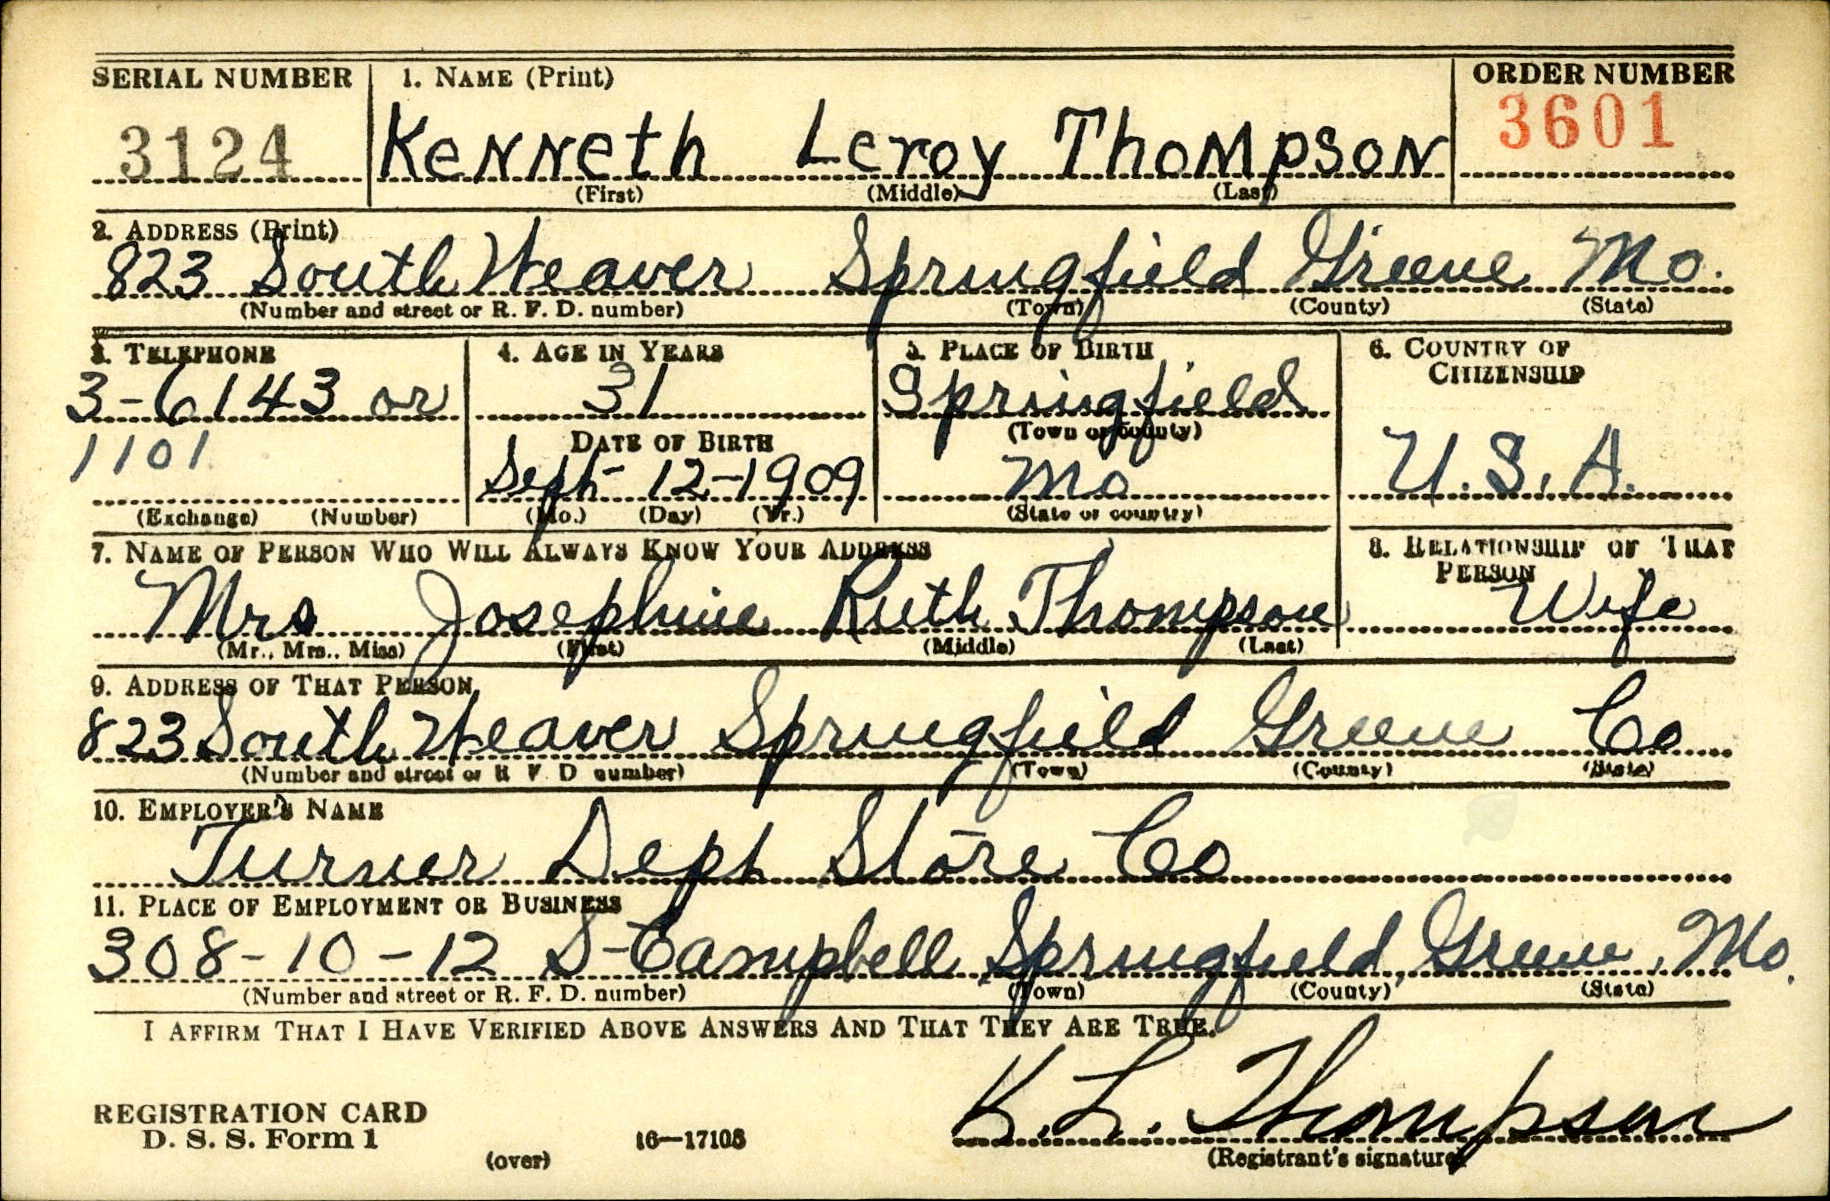 SERIAL NUMBER 1. NAME (Print) ORDER NUMBER
3124 Kenneth Leroy Thompson 3601
(First) (Middle) (Last)
2. ADDRESS (Print)
823 South Weaver Springfield Greene Mo.
(Number and street or R. F. D. number) (Town) (County) (State)
3. TELEPHONE 4. AGE IN YEARS 5. PLACE OF BIRTH 6. COUNTRY OF CITIZENSHIP
3-6143 or 31 Springfield
DATE OF BIRTH (Town or county)
1101 Sept-12-1909 Mo U.S.A.
(Exchange) (Number) (Mo.) (Day) (Yr.) (State or country)
7. NAME OF PERSON WHO WILL ALWAYS KNOW YOUR ADDRESS 8. RELATIONSHIP OF THAT PERSON
Mrs Josephine Ruth Thompson Wife
(Mr., Mrs., Miss) (First) (Middle) (Last)
9. ADDRESS OF THAT PERSON
823 South Weaver Springfield Greene Co
(Number and street or R F D number) (Town) (County) (State)
10. EMPLOYER'S NAME
Turner Dept Store Co
11. PLACE OF EMPLOYMENT OR BUSINESS
308-10-12 S-Campbell Springfield, Greene, Mo.
(Number and street or R. F. D. number) (Town) (County) (State)
I AFFIRM THAT I HAVE VERIFIED ABOVE ANSWERS AND THAT THEY ARE TRUE.
REGISTRATION CARD K. L. Thompson
D. S. S. Form 1 16—17105
(over) (Registrant's signature)